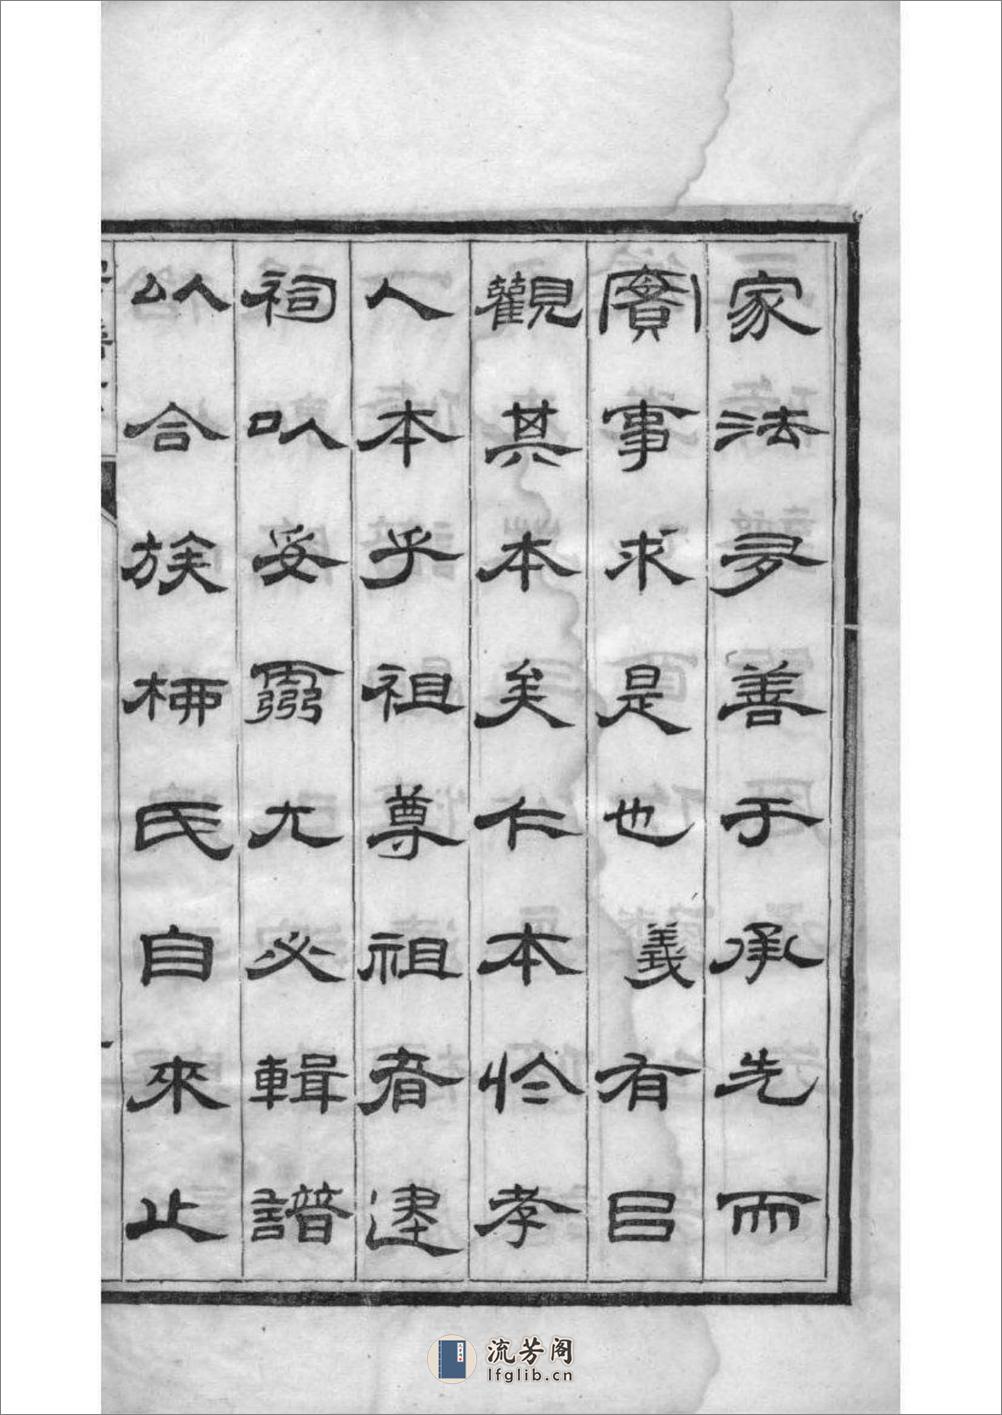 家法莫善于承先而
實事求是也義有㠯
觀其本矣仁本於孝
人本乎祖尊祖者建
祠以妥靈尤必輯譜
以合族柳氏自來止
流芳阁
lfglib.cn